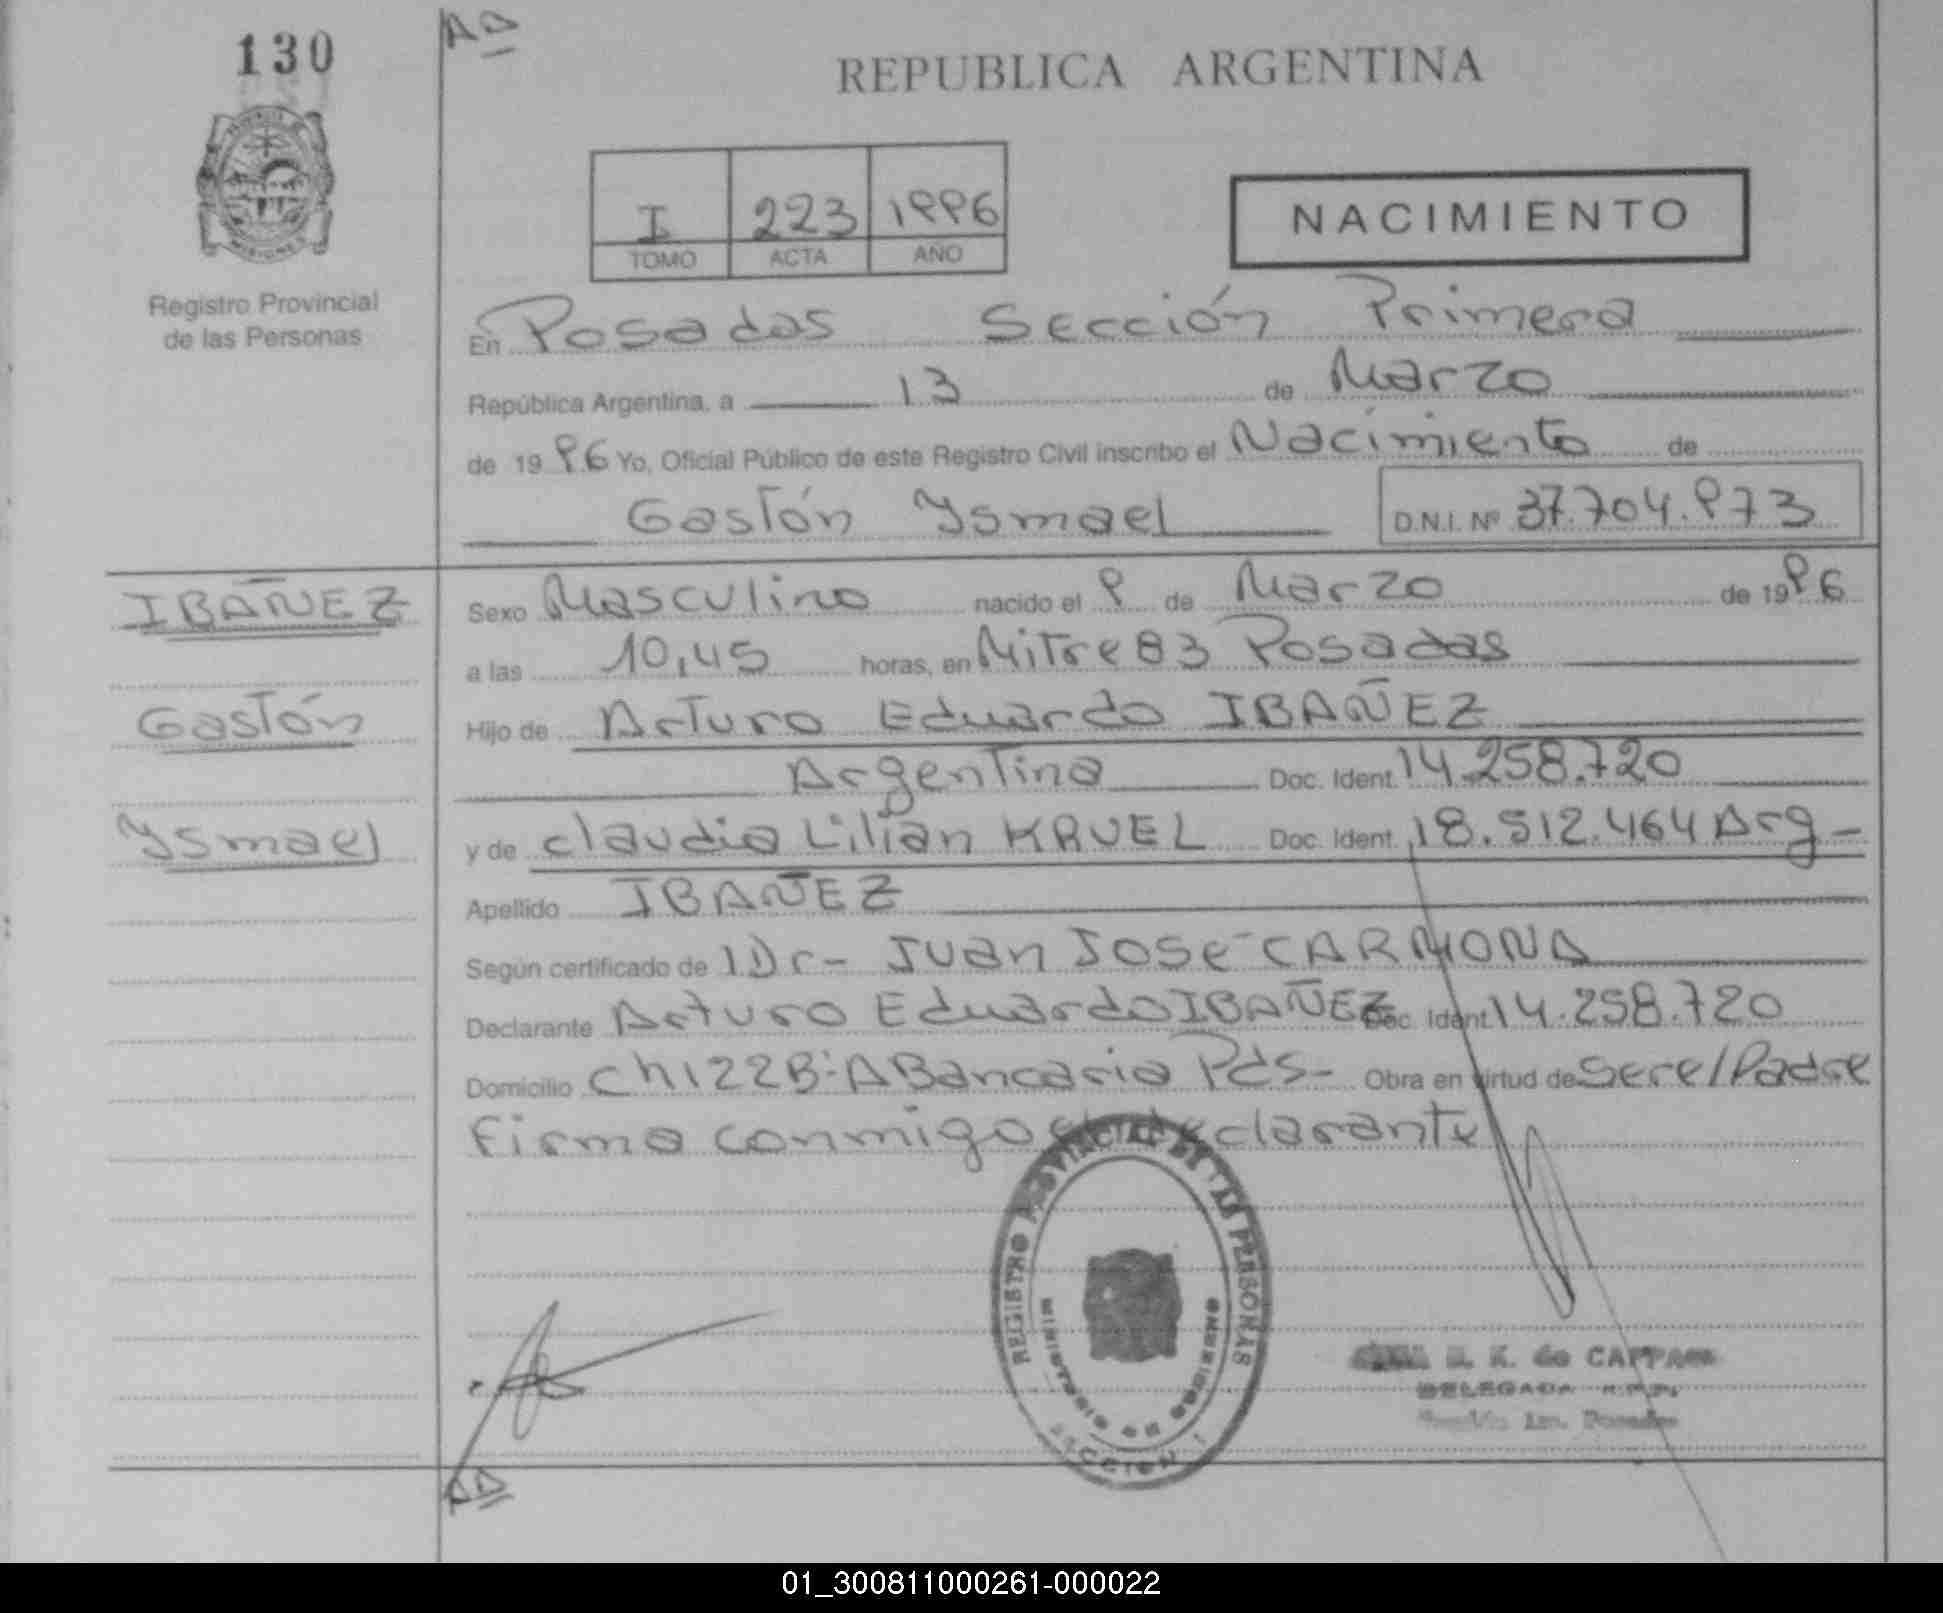 130
AD
REPUBLICA ARGENTINA
Registro Provincial
de las Personas
I 223 1996
TOMO ACTA AÑO
NACIMIENTO
En Posadas Sección Primera
República Argentina, a 13 de Marzo
de 19 96 Yo, Oficial Público de este Registro Civil inscribo el Nacimiento de
Gastón Ysmael D.N.I. Nº 37.704.973
IBAÑEZ
Gastón
Ysmael
Sexo Masculino nacido el 9 de Marzo de 19 96
a las 10,45 horas, en Mitre 83 Posadas
Hijo de Arturo Eduardo IBAÑEZ
Argentina Doc. Ident. 14.258.720
y de Claudia Lilian KRUEL Doc. Ident. 18.512.464 Arg-
Apellido IBAÑEZ
Según certificado de 1 Dr- Juan José CARMONA
Declarante Arturo Eduardo IBAÑEZ Doc. Ident. 14.258.720
Domicilio Ch122B:A Bancaria Pds- Obra en virtud de Ser el Padre
Firma conmigo el declarante
REGISTRO PROVINCIAL DE LAS PERSONAS
MINISTERIO DE GOBIERNO
SECCION 1
K. de CAPPA
DELEGADA
AD
01_300811000261-000022